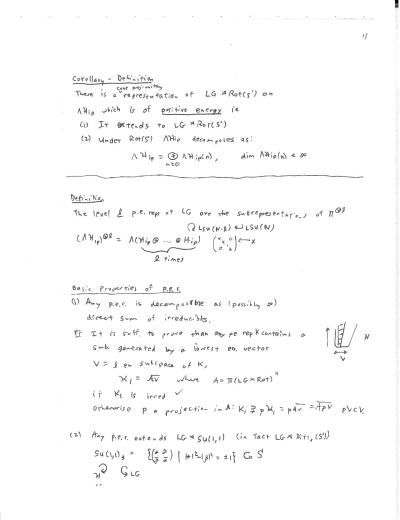 Corollary - Definition
There is a cont projective representation of LG ⋊ Rot(S¹) on
ΛH_{iP} which is of positive energy ie
(1) It extends to LG ⋊ Rot(S¹)
(2) Under Rot(S¹) ΛH_{iP} decomposes as:
ΛH_{iP} = ⊕_{n≥0} ΛH_{iP}(n), dim ΛH_{iP}(n) < ∞
Definition
The level ℓ p.e. rep of LG are the subrepresentations of π^{⊗ℓ}
(ΛH_{iP})^{⊗ℓ} = Λ(H_{iP} ⊕ ... ⊕ H_{iP})
ℓ times
Basic Properties of p.e.r.
(1) Any p.e.r. is decomposible as (possibly ∞)
direct sum of irreducibles.
Pf It is suff. to prove than any pe rep K contains a
sub. generated by a lowest en. vector
V = ℓ en subspace of K,
K₁ = \overline{AV} where A = π(LG ⋊ Rot)''
if K₁ is irred ✓
otherwise p a projection in A': K₁ ⊋ pK₁ = \overline{pAV} = \overline{ApV} pV⊂V.
H
V
(2) Any p.e.r. extends LG ⋊ SU(1,1) (in fact LG ⋊ Diff₊(S¹))